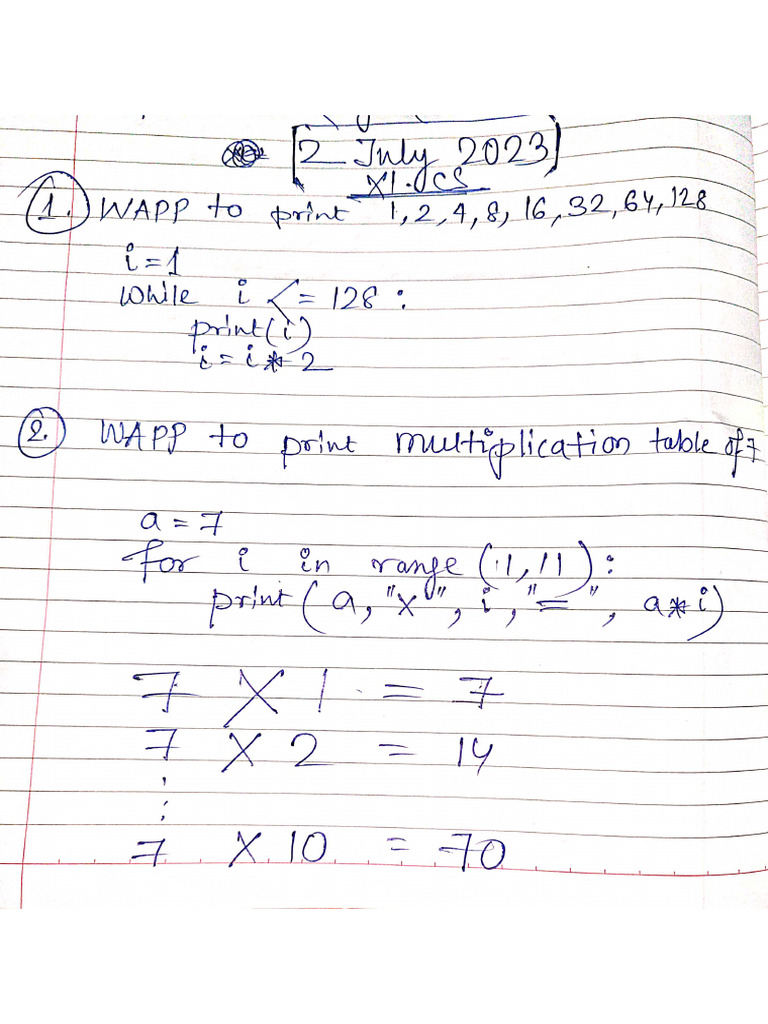 [2 July 2023]
XI. CS
1. WAPP to print 1, 2, 4, 8, 16, 32, 64, 128
i = 1
while i <= 128 :
print(i)
i = i * 2
2. WAPP to print multiplication table of 7
a = 7
for i in range (1, 11) :
print (a, "x", i, "=", a*i)
7 X 1 = 7
7 X 2 = 14
⋮
7 X 10 = 70